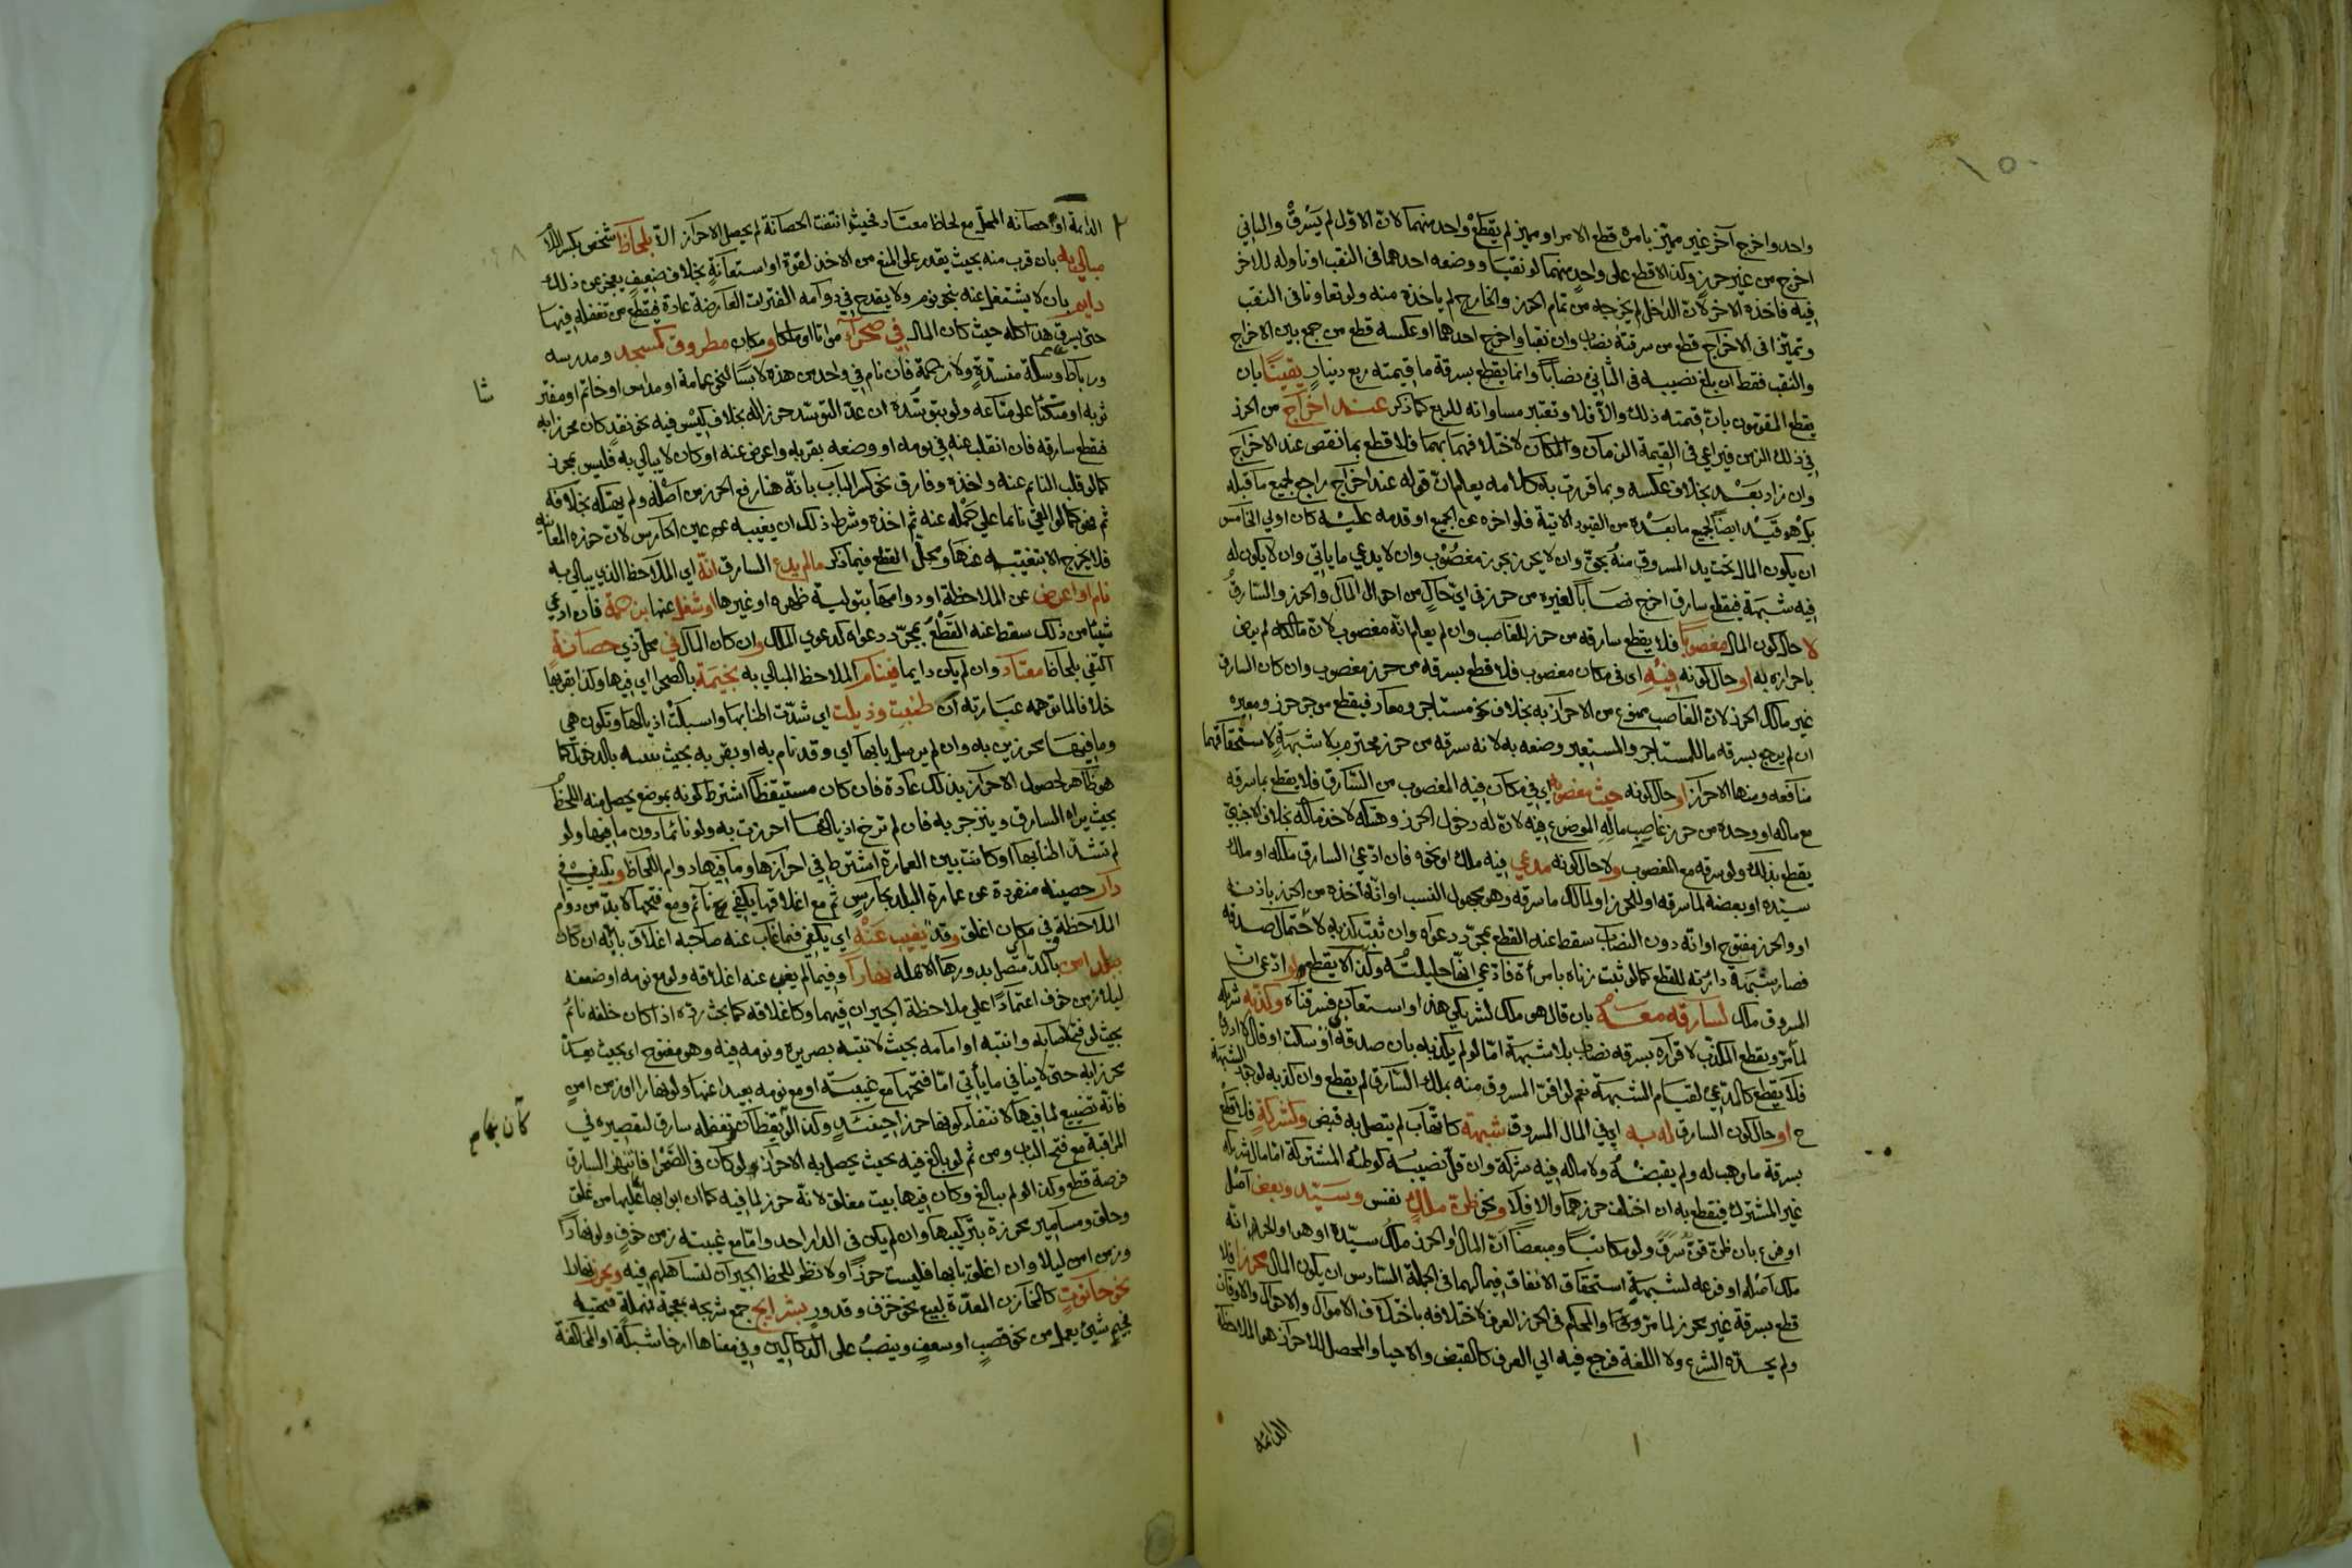 واحد واخرج آخر غير مميّز بامره قطع الامر او مميز لم يقطع واحد منهما لان الاول لم يسرق والثاني
اخرج من غير حرز وكذا لا قطع على واحد منهما لو نقبا ووضعه احدهما في النقب او ناوله للاخر
فيه فاخذه الاخر لان الداخل لم يخرجه من تمام الحرز والخارج لم ياخذه منه ولو تعاونا في النقب
وتميّزا في الاخراج قطع من سرقته نصاب وان نقبا واخرج احدهما او عكسه قطع من جمع بين الاخراج
والنقب فقط ان بلغ نصيبه في الثاني نصاباً وانما يقطع بسرقة ما قيمته ربع دينار يقينًا بان
يقطع المقومون بان قيمته ذلك والّا فلا وتعتبر مساواته للربع كما ذكر عند اخراج من الحرز
في ذلك الزمن فيراعي في القيمة الزمان والمكان لاختلافهما بهما فلا قطع بما نقص عند الاخراج
وان زاد بعد بخلاف عكسه وبما قررت به كلامه يعلم ان قوله عند اخراج راجع لجميع ما قبله
بل هو قيد ايضاً لجميع ما بعده من القيود الاتية فلو اخره عن الجميع او قدمه عليه كان اولي الخامس
ان يكون المال تحت يد المسروق منه بحق وان لا يحرز بحرز مغصوب وان لا يدعي ما ياتي وان لا يكون له
فيه شبهة فيقطع سارق اخرج نصاباً لغيره من حرز في اي حال من احوال المال والحرز والسارق
لا حال كون المال مغصوبا فلا يقطع سارقه من حرز الغاصب وان لم يعلم انه مغصوب لان مالكه لم يرض
باحرازه به او حال كونه فيه اي في مكان مغصوب فلا قطع بسرقه من حرز مغصوب وان كان السارق
غير مالك الحرز لان الغاصب ممنوع من الاحراز به بخلاف نحو مستاجر ومعار فيقطع موجر حرز ومعيره
ان لم يرجع بسرقه ما للمستاجر والمستعير وضعه به لانه سرقه من حرز محترم بلا شبهة لاستحقاقهما
منافعه ومنها الاحراز او حال كونه حيث مغصوبه اي في مكان فيه المغصوب من السارق فلا يقطع بما سرقه
مع ماله او وحده من حرز غاصب ماله الموضوع فيه لان له دخول الحرز وهتكه لاخذ ماله بخلاف الاجنبي
يقطع بذلك ولو سرقه مع المغصوب ولا حال كونه مدعي فيه ملك او نحوه فان ادعي السارق ملكه او ملك
سيّده او بعضه لما سرقه او للحرز او لمالك ما سرقه وهو مجهول النسب او انه اخذه من الحرز باذنه
او والحرز مفتوح او انه دون النصاب سقط عنه القطع بمجرد دعواه وان ثبت كذبه لاحتمال صدقه
فصار شبهة دارئة للقطع كما لو ثبت زناه بامرأة فادعي انها حليلته وكذا لا يقطع لو ادعي ان
المسروق ملك لسارقه معه بان قال هو ملك لشريكي هذا او استعان فسرقناه وكذبه شريكه
لما مرّ ويقطع المكذب لاقراره بسرقه نصاب بلا شبهة امّا لو لم يكذبه بان صدقه او سكت او قال لا ادري
فلا يقطع كالمدعي لقيام الشبهة نعم لو اقر المسروق منه بملك السارق لم يقطع وان كذبه لوجود الشبهة
ح او حال كون السارق له به اي في المال المسروق شبهة كاتهاب لم يتصل به قبض وكشركة فلا قطع
بسرقة ما وهب له ولم يقبضه ولا ماله فيه شركة وان قلّ نصيبه كوطئه المشتركة امّا مال شريكه
غير المشترك فيقطع به ان اختلف حرزهما والا فلا ونحو ظن ملك نفس وسيد وبعض اصل
او فرع بان ظنّ قنّ سرق ولو مكاتباً ومبعضاً ان المال او الحرز ملك سيّده او هو او الحر انه
ملك اصله او فرعه لشبهة استحقاق الانفاق فيما لهما في الجملة السادس ان يكون المال محرزا فلا
قطع بسرقة غير محرز لما مرّ والمحكم في الحرز العرف لاختلافه باختلاف الاموال والاحوال والاوقات
ولم يحده الشرع ولا اللغة فرجع فيه الي العرف كالقبض والاحيا والمحصل للاحراز هو الملاحظة
الدائمة
الدائمة او حصانه المحلّ مع لحاظ معتاد فحيث انتفت الحصانة لم يحصل الاحراز الّا بلحاظ شخص بكسر اللام
مبالي به بان قرب منه بحيث يقدر على المنع من الاخذ لقوة او استعانة بخلاف ضعيف يعجز عن ذلك
دايم بان لا يشتغل عنه بنحو نوم ولا يقدح في دوامه الفترات العارضة عادة فيقطع من تغفله فيها
حتى سرق هذا كله حيث كان المال في صحراء مواتا او ملكا او مكان مطروق كمسجد ومدرسه
ورباط وسكة منسدة ولا زحمة فان نام في واحد من هذه لابسًا لنحو عمامة او مداس او خاتم او مفتر
ثوبه او متكئا على متاعه ولو بتوسّده ان عدّ التوسّد حرز اله بخلاف كيس فيه نحو نقد كان محرزا به
فقطع سارقه فان انقلب عنه في نومه او ووضعه بقربه واعرض عنه او كان لا يبالي به فليس بمحرز
كما لو قلب النائم عنه واخذه وفارق نحو كسر الباب بانّه هنا رفع الحرز من اصله ولم يهتكه بخلافه
ثم هو كما لو القي نائما علي حمله عنه ثم اخذه وشرط ذلك ان يغيبه عن عين الحارس لان حرزه المعاينه
فلا يخرج الا بتغيبه عنها ومحلّ القطع فيما ذكر مالم يدع السارق انّه اي الملاحظ الذي يبالي به
نام او اعرض عن الملاحظة او دوامها بتولية ظهره او غيرها او شغل عنها بزحمة فان ادعي
شيئا من ذلك سقط عنه القطع بمجرّد دعواه كدعوي الملك وان كان المال في محلّ ذي حصانة
اكتفي بلحاظ معتاد وان لم يكن دايما فينام الملاحظ المبالي به بخيمة بالصحرا اي فيها وكذا بقربها
خلافا لما توهمه عبارته ان طنبت وذيلت اي شدّت اطنابها واسبلت اذيالها وتكون هي
وما فيها محرزين به وان لم يرسل بابها اي وقد نام به او بقربه بحيث يتنبه بالدخول كما
هو ظاهر لحصول الاحراز بذلك عادة فان كان مستيقظاً اشترط كونه بموضع يحصل منه اللحظ
بحيث يراه السارق وينزجر به فان لم ترخ اذيالها احرزت به ولو نائما دون ما فيها ولو
لم تشدّ اطنابها او كانت بين العمارة اشترط في احرازها وما فيها دوام اللحاظ ويكتفي في
دار حصينه منفردة عن عمارة البلد بحارس ثم مع اغلاقها يكفي نائم ومع فتحها لا بدّ من دوام
الملاحظة وفي مكان اغلق وقد يغيب عنه اي يكفي فيما غاب عنه صاحبه اغلاق بابه ان كان
ببلد امن باكد متّصل بدورها الاهله نهاراً وفيما لم يغب عنه اغلاقه ولو مع نومه او ضعفه
ليلا زمن خوف اعتمادًا علي ملاحظة الجيران فيهما وكاغلاقه كما بحث ردّه اذا كان خلفه نائم
بحيث لو فتح لصابه وانتبه او امامه بحيث لانتبه بصريره ونومه فيه وهو مفتوح اي بحيث يعدّ
محرزا به حتى لا ينافي ما يأتي امّا فتحها مع غيبته او مع نومه بعيدا عنها ولو نهارا او زمن امن
فانّه تضييع لما فيها لانتفاء كونها حرزا حينئذ وكذا لو يقظان تغفله سارق لتقصيره في
المراقبة مع فتح الباب ومن ثم لو بالغ فيه بحيث يحصل به الاحراز ولو كان في الصّحرا فانتهز السارق
فرصة قطع وكذا لو لم يبالغ وكان فيها بيت مغلق لانّه حرز لما فيه كما ان ابوابها عليها من غلق
وحلق ومسامير محرزة بتركيبها وان لم يكن في الدار احد وامّا مع غيبته زمن خوف ولو نهاراً
وزمن امن ليلا وان اغلق بابها فليست حرزاً ولا نظر للحظ الجيران لتساهلهم فيه ويحرز نهارا
نحو حانوت كالمخازن المعدّة لبيع نحو خزف وقدور بشرايج جمع شريجه بمعجمة فمهملة فتحتيه
فجيم شيئ يعمل من نحو قصب او سعف وينصب على الدكاكين وفي معناها ارخا شبكة او المخالفة
كان بهام